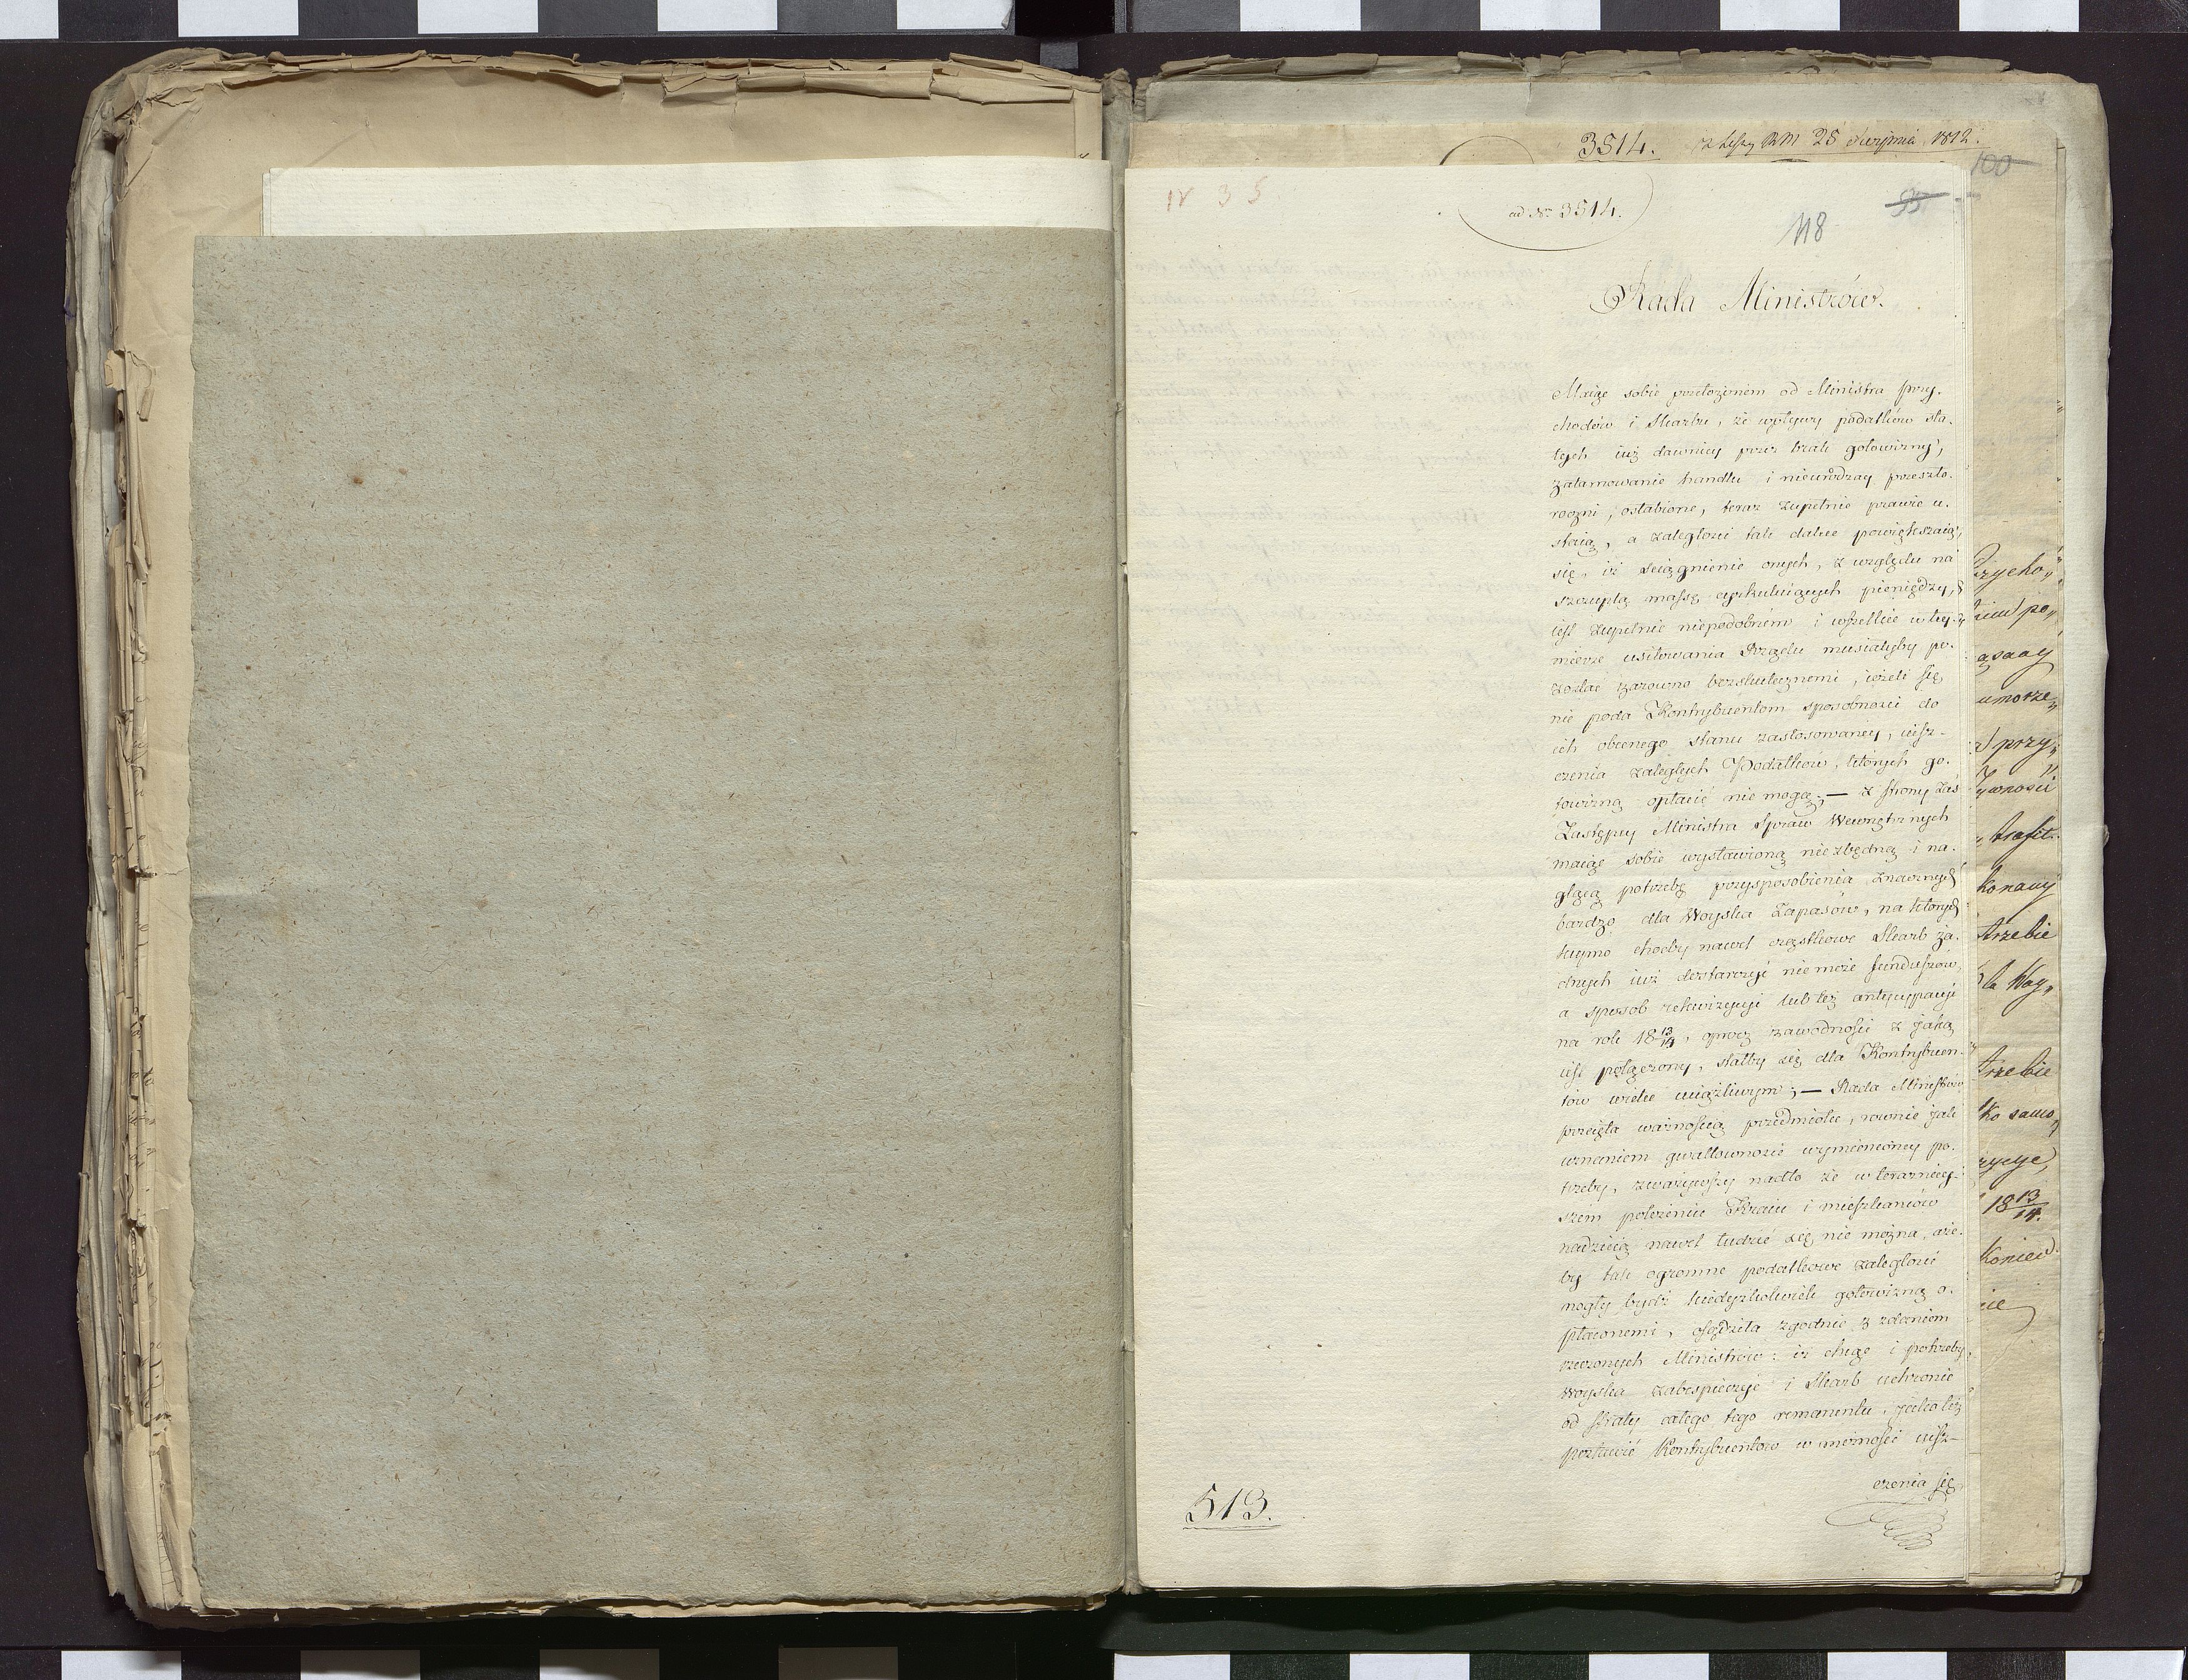 3514. z Sessyi RM 25 Sierpnia 1812.
100
IV 35
ad N. 3514.
118
95
Rada Ministrów.
Maiąc sobie przełożonem od Ministra Przy-
chodów i Skarbu, że wpływy podatków sta-
łych iuż dawniey przez brak gotowizny,
zatamowanie handlu i nieurodzay przeszło-
roczni, osłabione, teraz zupełnie prawie u-
staią, a zaległości tak dalece powiększaią
się, iż ściągnienie onych, z względu na
szczupłą massę cyrkuluiących pieniędzy,
iest zupełnie niepodobném i wszelkie w tey
mierze usiłowania Rządu musiałyby po-
zostać zarówno bezskutecznemi, ieżeli się
nie poda Kontrybuentom sposobności do
ich obecnego stanu zastosowaney, uisz-
czenia zaległych Podatków, których go-
towizną opłacić nie mogą; — z strony zaś
Zastępcy Ministra Spraw Wewnętrznych
maiąc sobie wystawioną niezbędną i na-
glącą potrzebę przysposobienia znacznych
bardzo dla Woyska Zapasów, na których
kupno choćby nawet cząstkowe Skarb ża-
dnych iuż dostarczyć nie może funduszów,
a sposób rekwizycyi lub też antycypacyi
na rok 18 13/14, oprócz zawodności z jaką
iest połączony, stałby się dla Kontrybuen-
tów wielce uciążliwym; — Rada Ministrów
przeięta ważnością przedmiotu, równie jak
uznaniem gwałtowności wymienioney po-
trzeby, zważywszy nadto że w teraźniey-
szém położeniu Kraiu i mieszkańców
nadzieią nawet łudzić się nie można, aże-
by tak ogromne podatkowe zaległości
mogły bydź kiedyżkolwiek gotowizną o-
płaconemi, osądziła zgodnie z zdaniem
rzeczonych Ministrów: iż chcąc i potrzeby
Woyska zabespieczyć i Skarb uchronić
od straty całego tego remanentu, jako też
postawić Kontrybuentów w możności uisz-
czenia się
513.
rzycho„
po„
ązany
umorze„
przy„
ywności
trafit.
konany
trzebie
la Woy„
trzebie
ko samo
rycye,
18 13/14.
koniec
nie